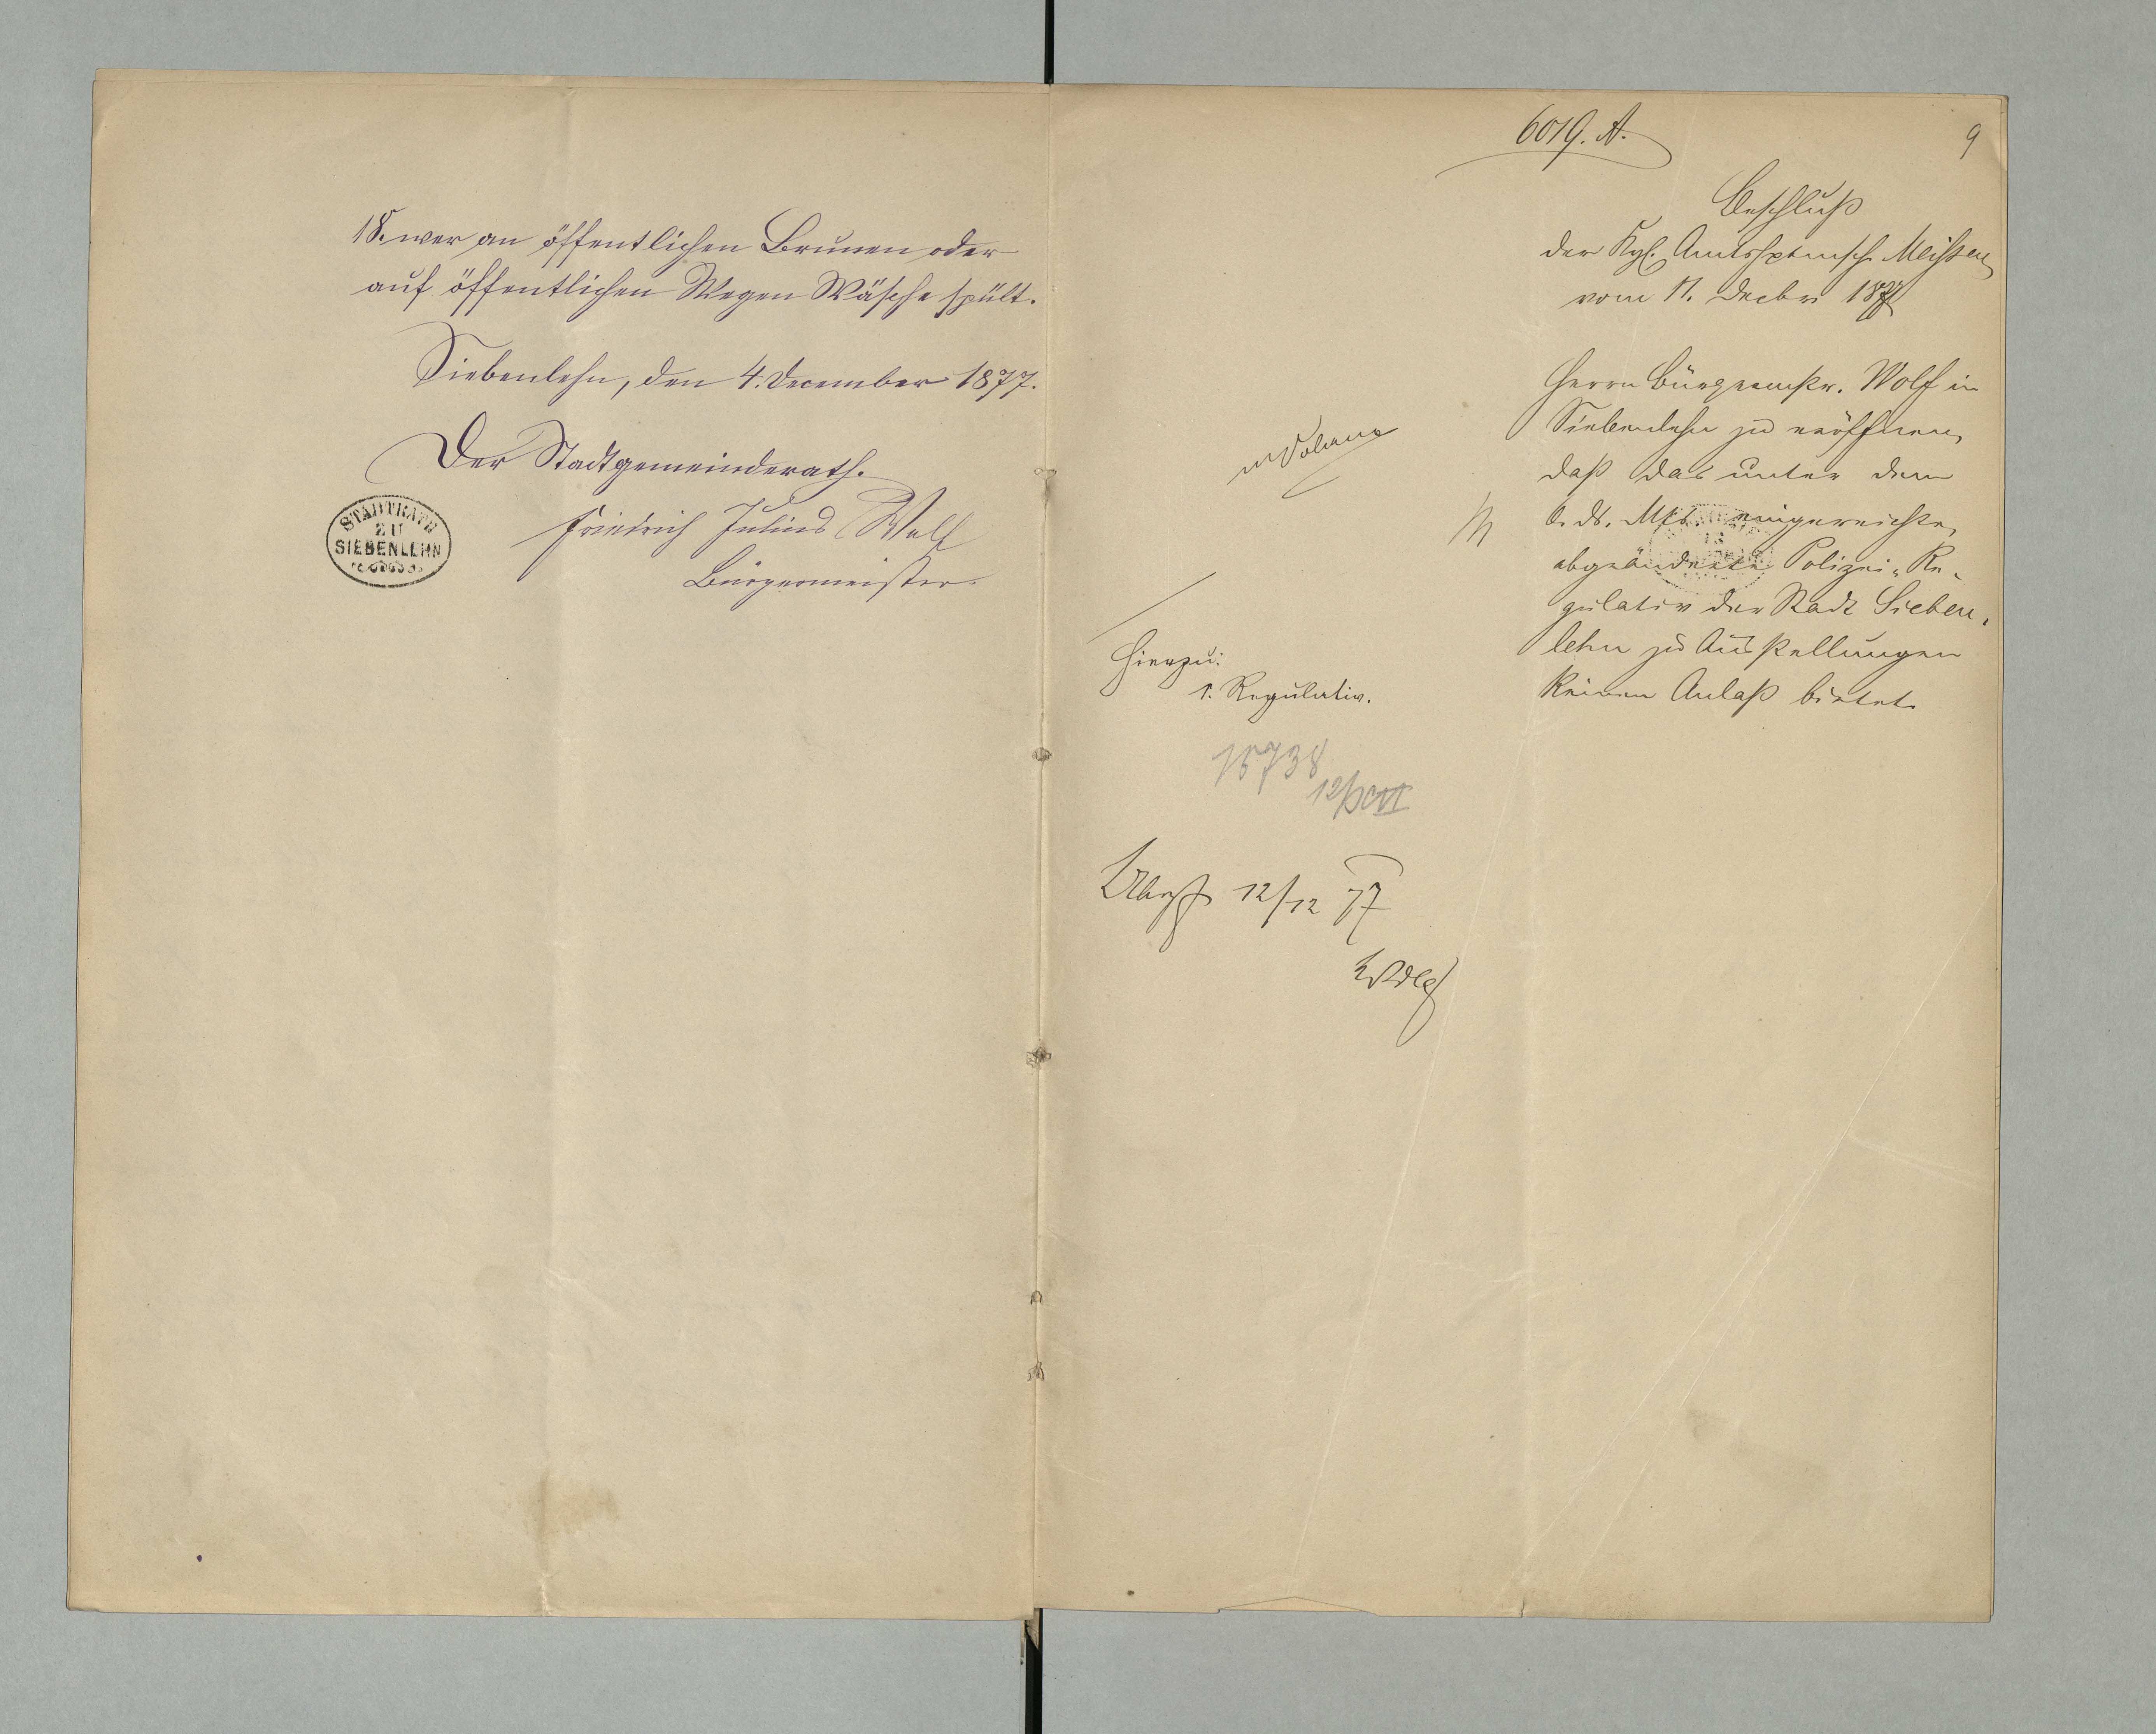 18. wer an öffentlichen Brunnen oder
auf öffentlichen Wegen Wäsche spült.
Siebenlehn, den 4. December 1877.
Der Stadtgemeinderath.
Friedrich Julius Wolf
Bürgermeister.
STADTRATH
ZU
SIEBENLEHN
6019. A.
9
Beschluß
der Kgl. Amtshptmsch. Meißen
vom 11. Decbr 1877
Herrn Bürgermstr. Wolf in
Siebenlehn zu eröffnen,
daß das unter dem
6. ds. Mts. eingereichte,
abgeänderte Polizei-Re-
gulativ der Stadt Sieben-
lehn zu Ausstellungen
keinen Anlaß bietet.
Hierzu:
1. Regulativ.
15738
12/12 77